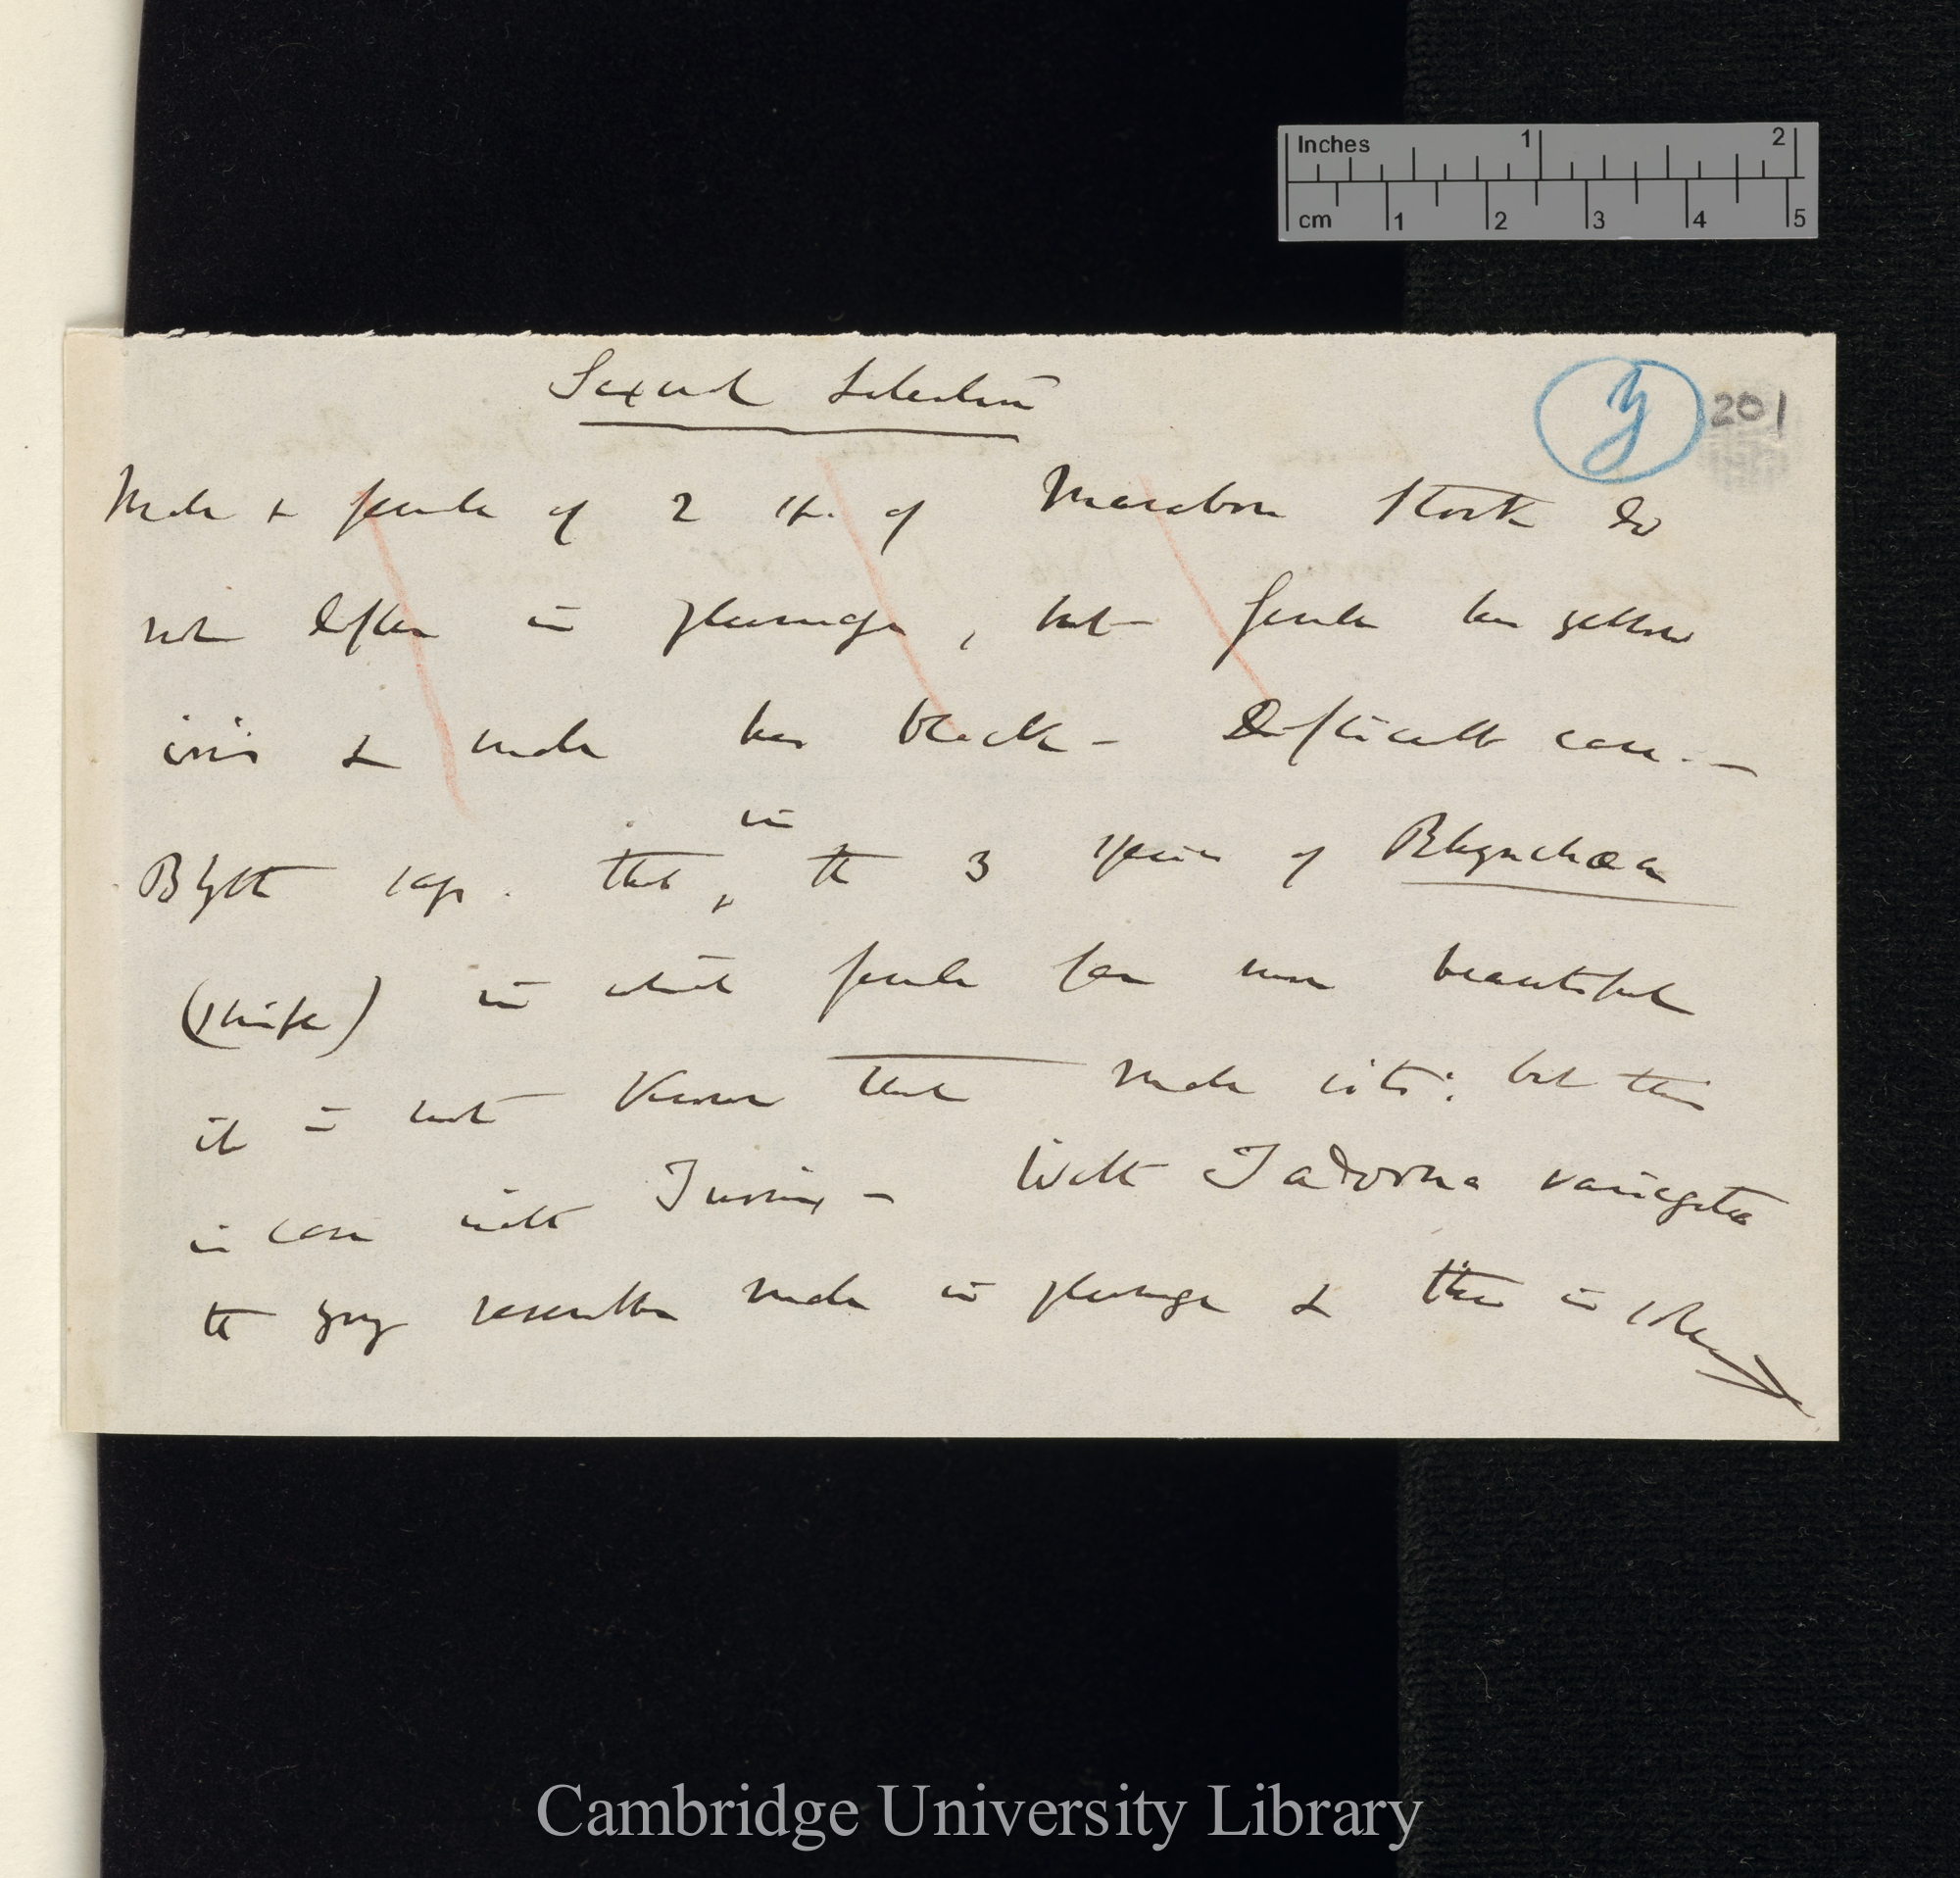 Inches 1 2
cm 1 2 3 4 5
Sexual Selection
y 201
Male & female of 2 sp. of Marabou Stork do
not differ in plumage, but female has yellow
iris & male has black — Difficult case. —
Blyth says. that in the 3 species of Rhynchæa
(snipe) in which female far more beautiful
it is not known that male sits: but this
is case with Turnix — With Tadorna variegata
the young resembles male in plumage & this is